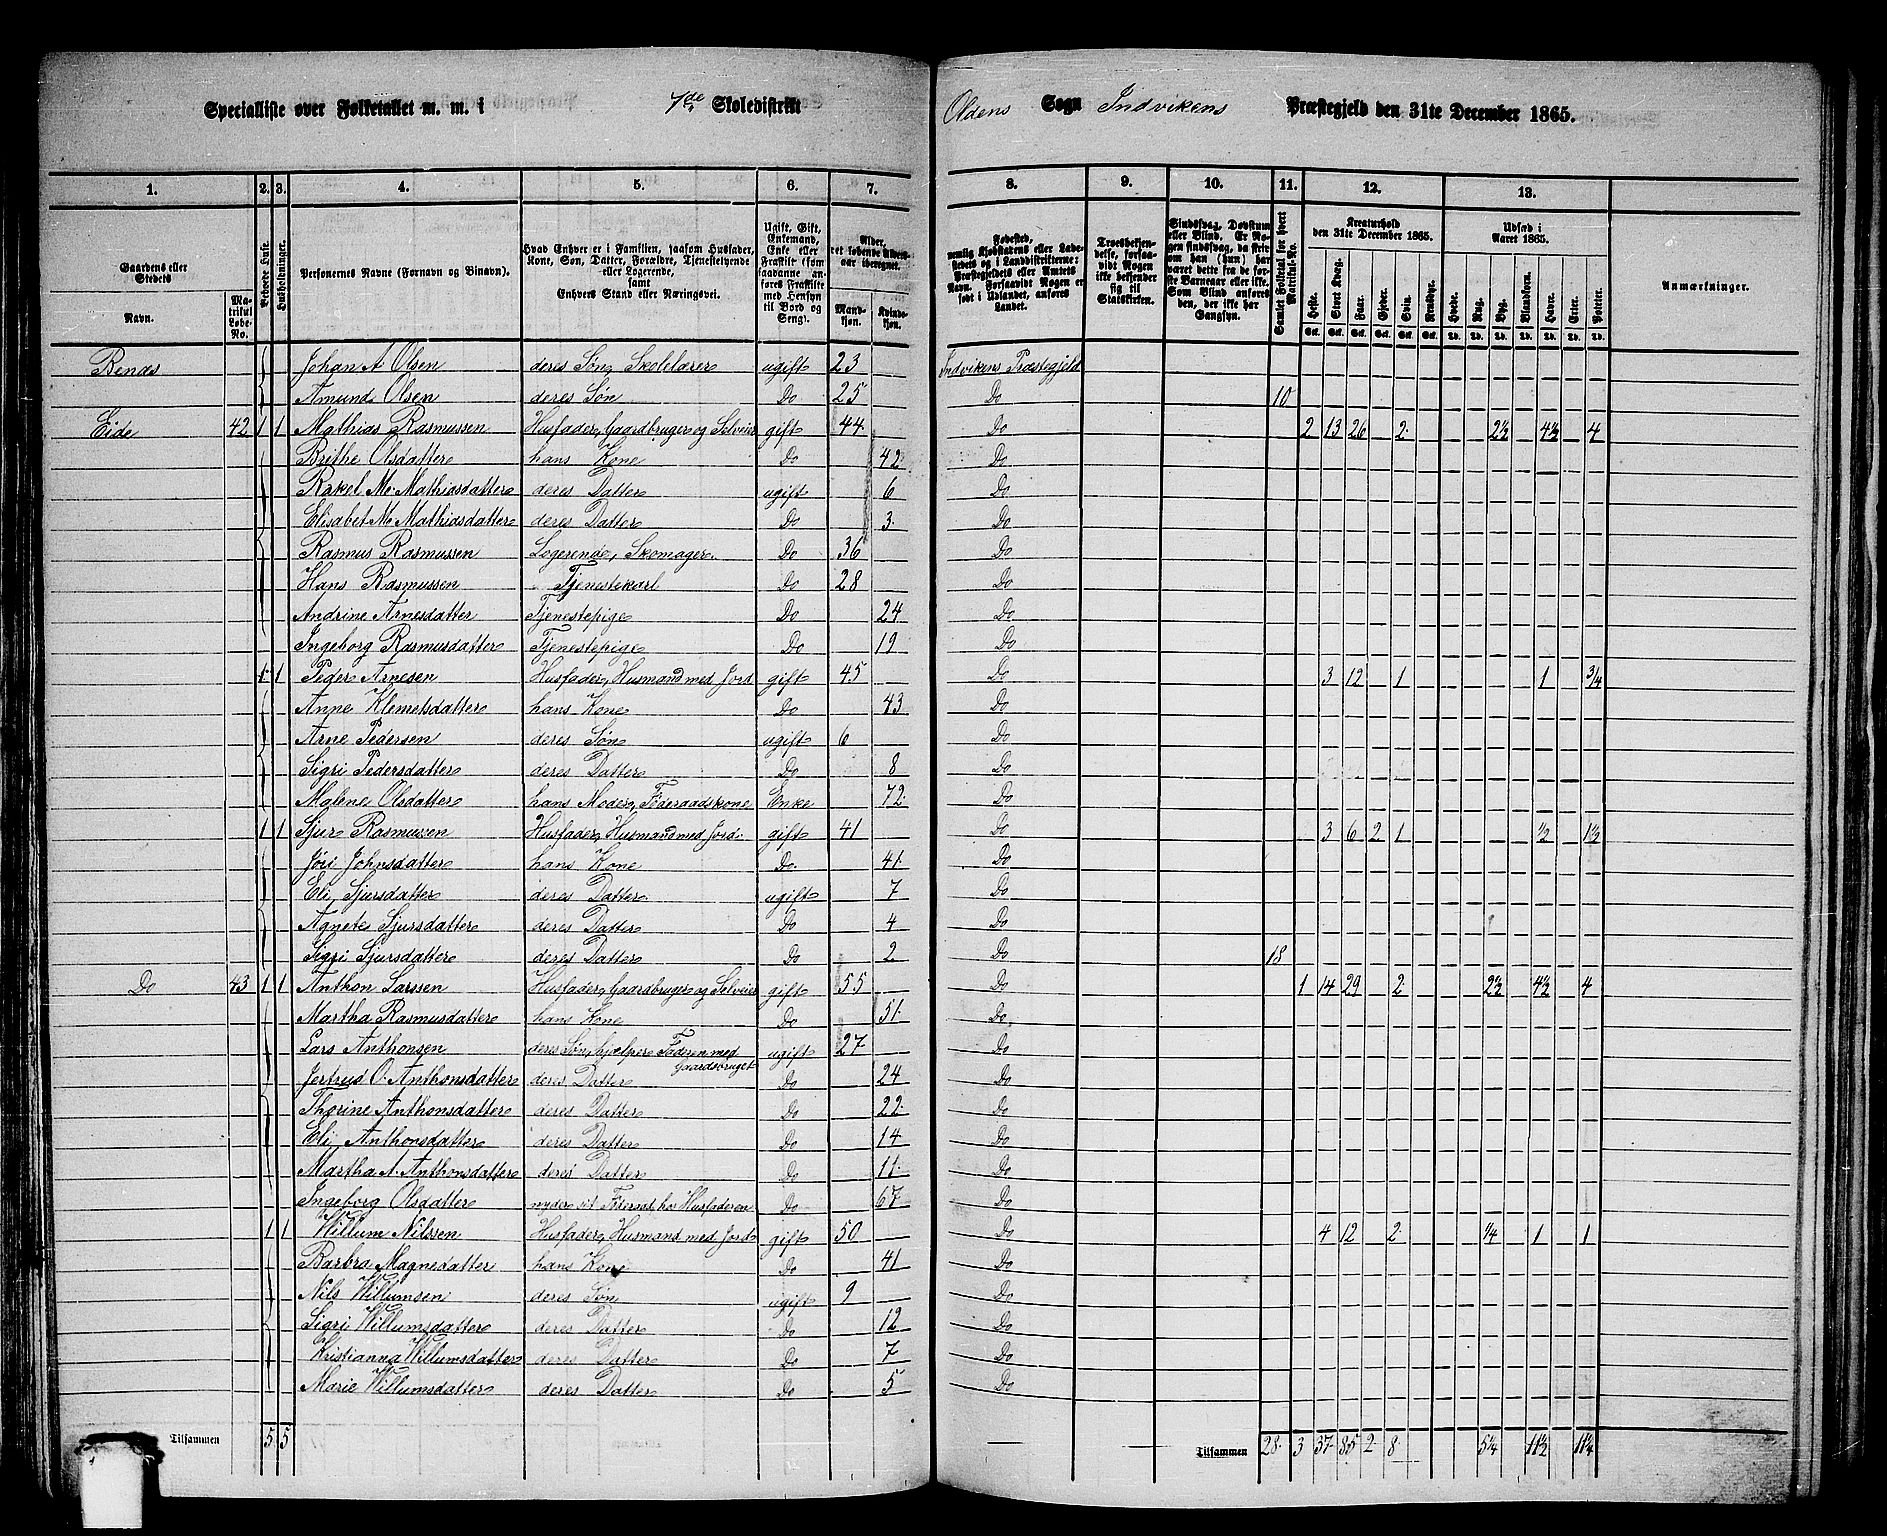 Specialliste over Folketallet m. m. i 7de Skoledistrikt Oldens Sogn Indvikens Præstegjeld den 31te December 1865.
1. 2. 3. 4. 5. 6. 7. 8. 9. 10. 11. 12. 13.
Gaardens eller Stedets
Navn.
Matrikul Løbe-No.
Beboede Huse.
Husholdninger.
Personernes Navne (Fornavn og Binavn).
Hvad Enhver er i Familien, saasom Husfader, Kone, Søn, Datter, Forældre, Tjenestetyende eller Logerende,
samt
Enhvers Stand eller Næringsvei.
Ugift, Gift, Enkemand, Enke eller Fraskilt (som saadanne anføres Fraskilte med Hensyn til Bord og Seng).
Alder,
det løbende Alders-
aar iberegnet.
Mandkjøn. Kvindekjøn.
Fødested,
nemlig Kjøbstadens eller Ladestedets og i Landdistrikterne: Præstegjeldets eller Amtets Navn. Forsaavidt Nogen er født i Udlandet, anføres Landet.
Troesbekjendelse, forsaavidt Nogen ikke bekjender sig til Statskirken.
Sindssvag, Døvstum eller Blind. Er Nogen sindssvag, da skrives om han (hun) har været dette fra de første Barneaar eller ikke. Som Blind anføres den, der ikke har Gangsyn.
Samlet Folketal for hvert Matrikul-No.
Kreaturhold
den 31te December 1865.
Heste. Stort Kvæg. Faar. Gjeder. Svin. Rensdyr.
Udsæd i
Aaret 1865.
Hvede. Rug. Byg. Blandkorn. Havre. Erter. Poteter.
Anmærkninger.
Bends Johan A Olsen deres Søn, Skolelærer ugift 23 Indvikens Præstegjeld
Amund Olsen deres Søn Do 25 Do 10
Eide 42 1 1 Mathias Rasmussen Husfader, Gaardbruger og Selveier gift 44 Do 2 13 26 2 2½ 4½ 4
Brithe Olsdatter hans Kone Do 42 Do
Rakel M. Mathiasdatter deres Datter ugift 6 Do
Elisabet M Mathiasdatter deres Datter Do 3 Do
Rasmus Rasmussen Logerende, Skomager Do 36 Do
Hans Rasmussen Tjenestekarl Do 28 Do
Andrine Arnesdatter Tjenestepige Do 24 Do
Ingeborg Rasmusdatter Tjenestepige Do 19 Do
1 1 Peder Arnesen Husfader, Husmand med Jord gift 45 Do 3 12 1 1 ¾
Anne Klemetsdatter hans Kone Do 43 Do
Arne Pedersen deres Søn ugift 6 Do
Sigri Pedersdatter deres Datter Do 8 Do
Malene Olsdatter hans Moder, Føderaadskone Enke 72 Do
1 1 Sjur Rasmussen Husfader, Husmand med Jord gift 41 Do 3 6 2 1 ½ 1½
Jøri Johnsdatter hans Kone Do 41 Do
Eli Sjursdatter deres Datter ugift 7 Do
Agnete Sjursdatter deres Datter Do 4 Do
Sigri Sjursdatter deres Datter Do 2 Do 18
Do 43 1 1 Anthon Larssen Husfader, Gaardbruger og Selveier gift 55 Do 1 14 29 2 2½ 4½ 4
Martha Rasmusdatter hans Kone Do 51 Do
Lars Anthonsen deres Søn, hjælper Faderen med Gaardsbruget ugift 27 Do
Jertrud O. Anthonsdatter deres Datter Do 24 Do
Thorine Anthonsdatter deres Datter Do 22 Do
Eli Anthonsdatter deres Datter Do 14 Do
Martha A. Anthonsdatter deres Datter Do 11 Do
Ingeborg Olsdatter nyder sit Føderaad hos Husfaderen Do 67 Do
1 1 Willum Nilssen Husfader, Husmand med Jord gift 50 Do 4 12 2 ¼ 1 1
Barbra Magnedatter hans Kone Do 41 Do
Nils Willumsen deres Søn ugift 9 Do
Sigri Willumsdatter deres Datter Do 12 Do
Kristianna Willumsdatter deres Datter Do 7 Do
Marie Willumsdatter deres Datter Do 5 Do
Tilsammen 5 5 Tilsammen 28 3 37 85 2 8 5¼ 11½ 11¼